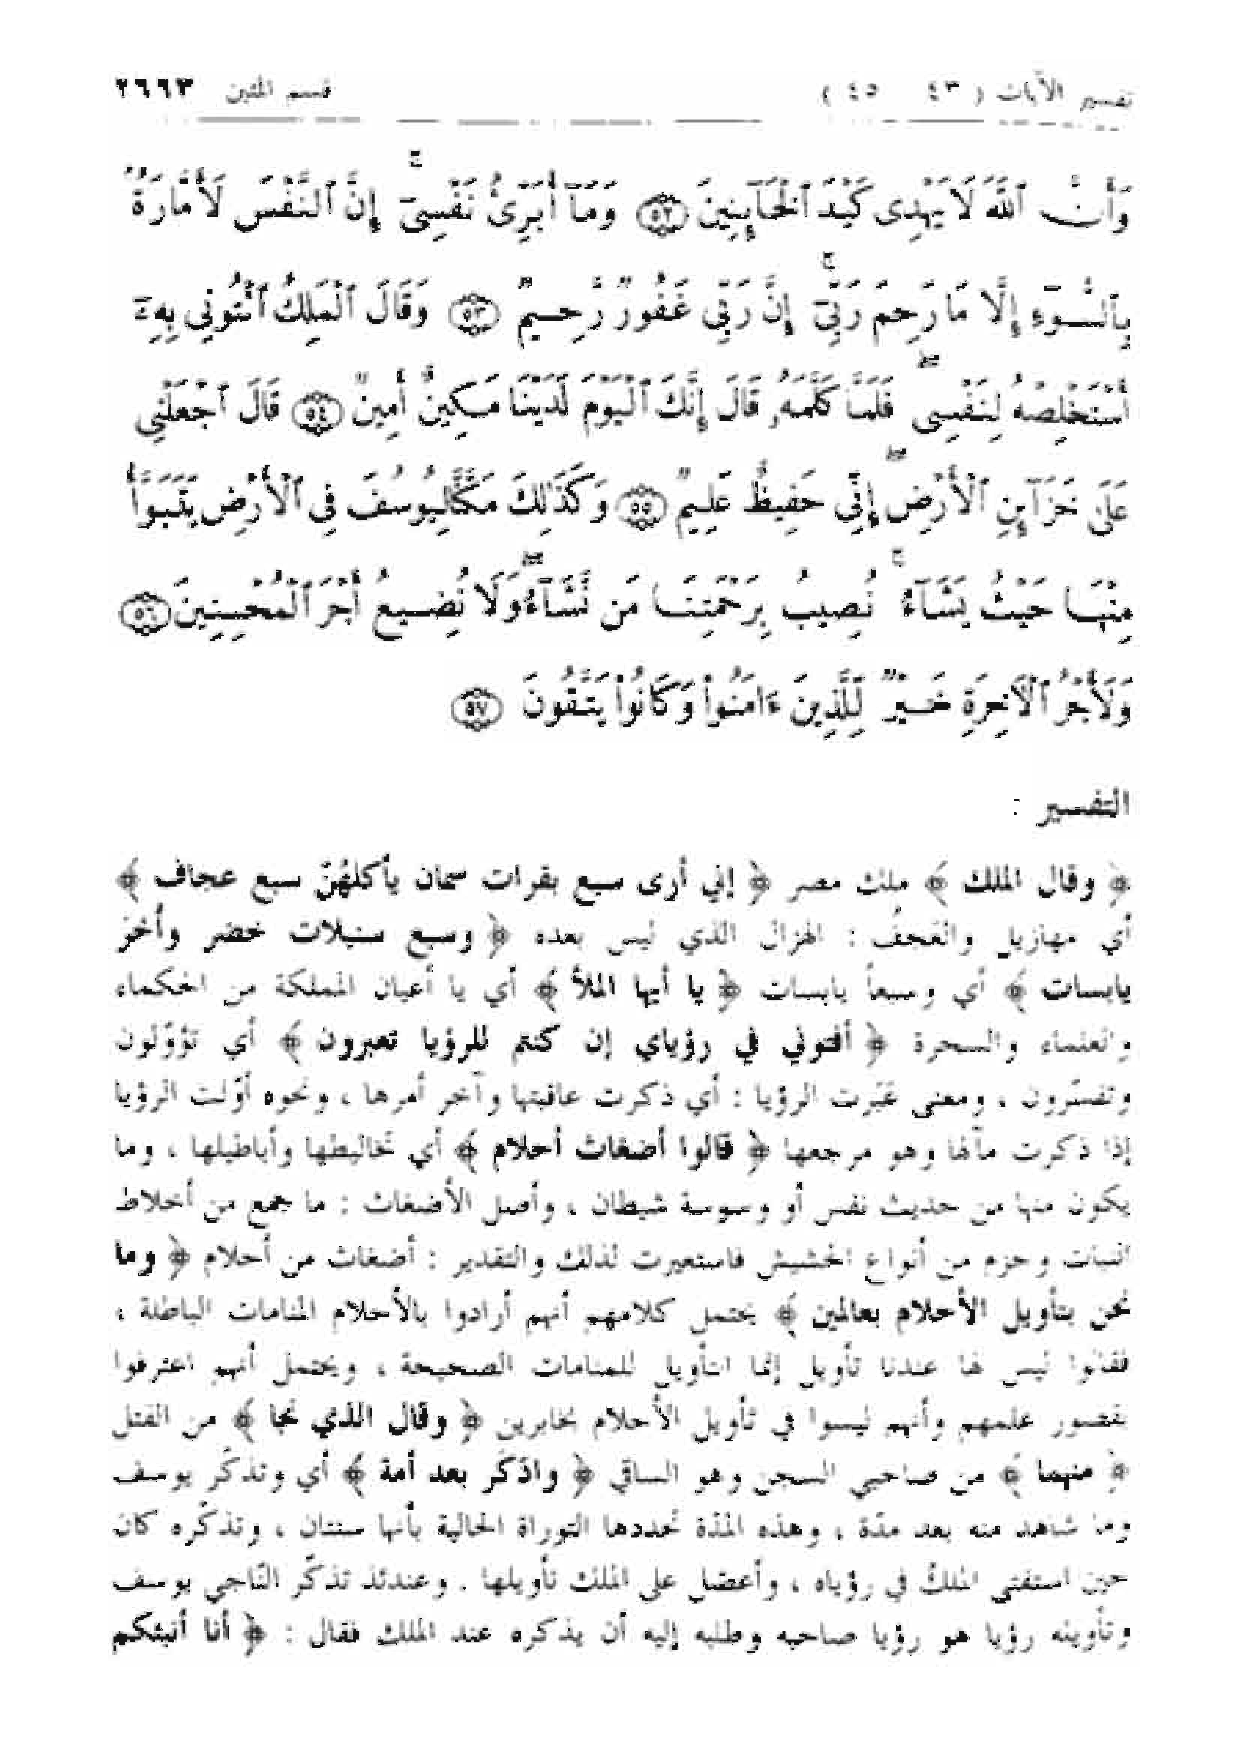 تفسير الآيات ( ٤٣ ٤٥ ) قسم المئين ٢٦٦٣
وَأَنَّ ٱللَّهَ لَا يَهْدِى كَيْدَ ٱلْخَآئِنِينَ ﴿٥٢﴾ وَمَآ أُبَرِّئُ نَفْسِىٓ ۚ إِنَّ ٱلنَّفْسَ لَأَمَّارَةٌۢ
بِٱلسُّوٓءِ إِلَّا مَا رَحِمَ رَبِّىٓ ۚ إِنَّ رَبِّى غَفُورٌ رَّحِيمٌ ﴿٥٣﴾ وَقَالَ ٱلْمَلِكُ ٱئْتُونِى بِهِۦٓ
أَسْتَخْلِصْهُ لِنَفْسِى ۖ فَلَمَّا كَلَّمَهُۥ قَالَ إِنَّكَ ٱلْيَوْمَ لَدَيْنَا مَكِينٌ أَمِينٌ ﴿٥٤﴾ قَالَ ٱجْعَلْنِى
عَلَىٰ خَزَآئِنِ ٱلْأَرْضِ ۖ إِنِّى حَفِيظٌ عَلِيمٌ ﴿٥٥﴾ وَكَذَٰلِكَ مَكَّنَّا لِيُوسُفَ فِى ٱلْأَرْضِ يَتَبَوَّأُ
مِنْهَا حَيْثُ يَشَآءُ ۚ نُصِيبُ بِرَحْمَتِنَا مَن نَّشَآءُ ۖ وَلَا نُضِيعُ أَجْرَ ٱلْمُحْسِنِينَ ﴿٥٦﴾
وَلَأَجْرُ ٱلْآخِرَةِ خَيْرٌ لِّلَّذِينَ ءَامَنُوا۟ وَكَانُوا۟ يَتَّقُونَ ﴿٥٧﴾
التفسير :
﴿ وقال الملك ﴾ ملك مصر ﴿ إني أرى سبع بقرات سمان يأكلهُنّ سبع عجاف ﴾
أي مهازيل والعَجَفُ : الهزال الذي ليس بعده ﴿ وسبع سنبلات خضر وأخر
يابسات ﴾ أي وسبعاً يابسات ﴿ يا أيها الملأ ﴾ أي يا أعيان المملكة من الحكماء
والعلماء والسحرة ﴿ أفتوني في رؤياي إن كنتم للرؤيا تعبرون ﴾ أي تؤوّلون
وتفسّرون ، ومعنى عَبَرت الرؤيا : أي ذكرت عاقبتها وآخر أمرها ، ونحوه أوّلت الرؤيا
إذا ذكرت مآلها وهو مرجعها ﴿ قالوا أضغاث أحلام ﴾ أي تخاليطها وأباطيلها ، وما
يكون منها من حديث نفس أو وسوسة شيطان ، وأصل الأضغاث : ما جمع من أخلاط
النبات وحزم من أنواع الحشيش فاستعيرت لذلك والتقدير : أضغاث من أحلام ﴿ وما
نحن بتأويل الأحلام بعالمين ﴾ يحتمل كلامهم أنهم أرادوا بالأحلام المنامات الباطلة ،
فقالوا ليس لها عندنا تأويل إنما التأويل للمنامات الصحيحة ، ويحتمل أنهم اعترفوا
بقصور علمهم وأنهم ليسوا في تأويل الأحلام بخابرين ﴿ وقال الذي نجا ﴾ من القتل
﴿ منهما ﴾ من صاحبي السجن وهو الساقي ﴿ وادّكر بعد أمة ﴾ أي وتذكّر يوسف
وما شاهد منه بعد مدّة ، وهذه المدّة تحددها التوراة الحالية بأنها سنتان ، وتذكّره كان
حين استفتى الملكُ في رؤياه ، وأعضل على الملك تأويلها . وعندئذ تذكّر النّاجي يوسف
وتأويله رؤيا هو رؤيا صاحبه وطلبه إليه أن يذكره عند الملك فقال : ﴿ أنا أنبئكم